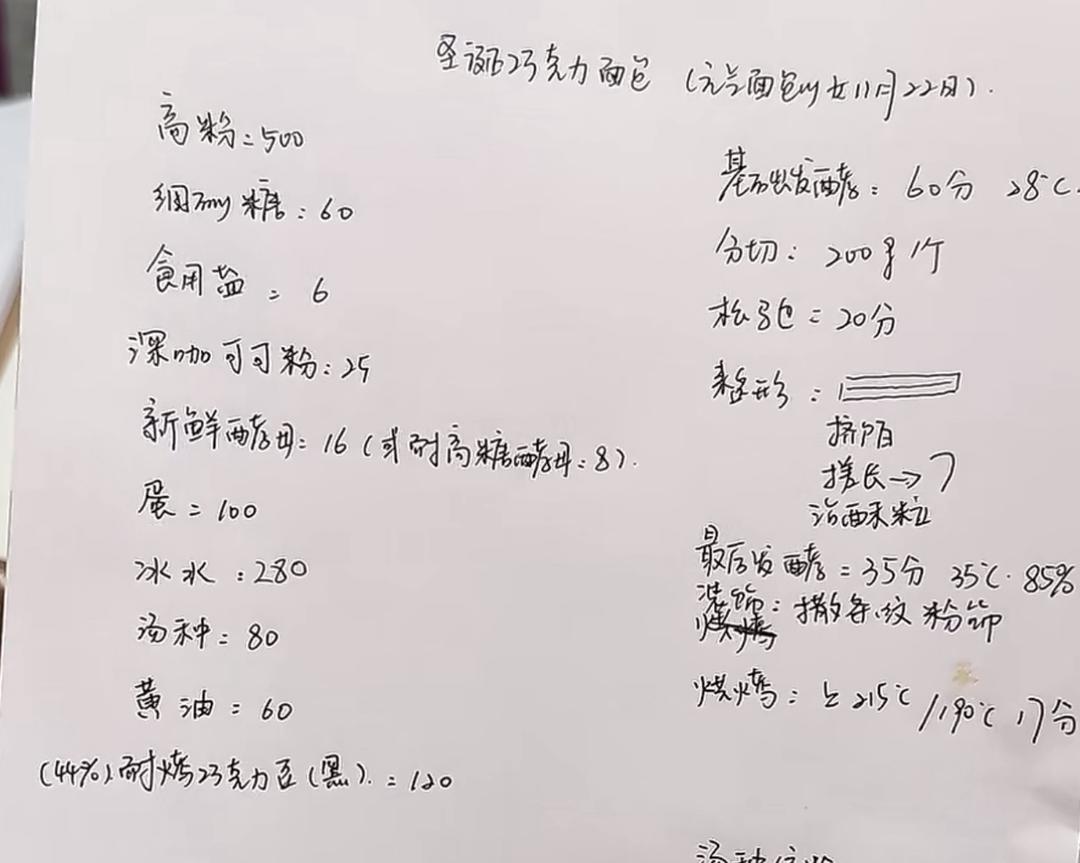 圣诞巧克力面包 (元兰面包my女11月22日).
高粉:500
细砂糖:60
食用盐:6
深咖可可粉:25
新鲜酵母:16(或耐高糖酵母:8).
蛋:100
冰水:280
汤种:80
黄油:60
(44%)耐烤巧克力豆(黑).:120
基础发酵:60分 28℃.
分切:200g/个
松弛:20分
整形:
挤馅
搓长→7
沾酥粒
最后发酵:35分 35℃. 85%
装饰:撒条纹粉饰
烘烤:上215℃/190℃ 17分
汤种